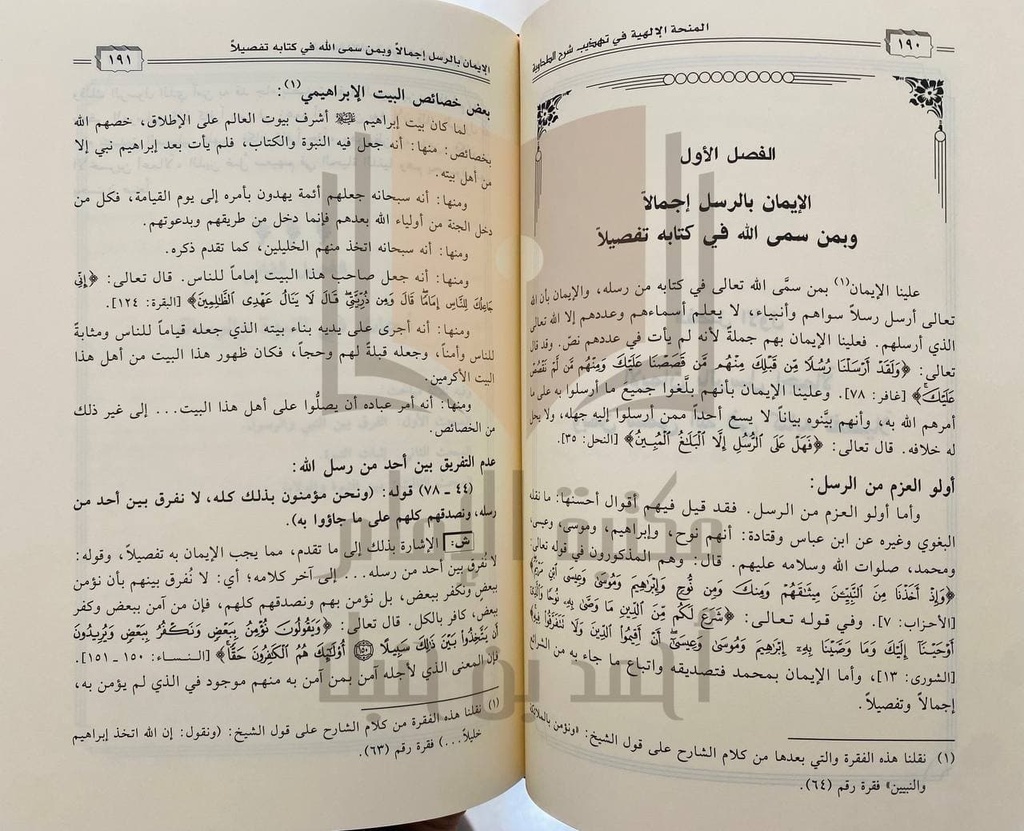 ١٩٠
المنحة الإلهية في تهذيب شرح الطحاوية
الفصل الأول
الإيمان بالرسل إجمالاً
وبمن سمى الله في كتابه تفصيلاً
علينا الإيمان(١) بمن سمَّى الله تعالى في كتابه من رسله، والإيمان بأن الله
تعالى أرسل رسلاً سواهم وأنبياء، لا يعلم أسماءهم وعددهم إلا الله تعالى
الذي أرسلهم. فعلينا الإيمان بهم جملةً لأنه لم يأت في عددهم نصّ. وقد قال
تعالى: ﴿وَلَقَدْ أَرْسَلْنَا رُسُلًا مِّن قَبْلِكَ مِنْهُم مَّن قَصَصْنَا عَلَيْكَ وَمِنْهُم مَّن لَّمْ نَقْصُصْ
عَلَيْكَ﴾ [غافر: ٧٨]. وعلينا الإيمان بأنهم بلَّغوا جميع ما أرسلوا به على ما
أمرهم الله به، وأنهم بيَّنوه بياناً لا يسع أحداً ممن أرسلوا إليه جهله، ولا يحل
له خلافه. قال تعالى: ﴿فَهَلْ عَلَى الرُّسُلِ إِلَّا الْبَلَاغُ الْمُبِينُ﴾ [النحل: ٣٥].
أولو العزم من الرسل:
وأما أولو العزم من الرسل. فقد قيل فيهم أقوال أحسنها: ما نقله
البغوي وغيره عن ابن عباس وقتادة: أنهم نوح، وإبراهيم، وموسى، وعيسى،
ومحمد، صلوات الله وسلامه عليهم. قال: وهم المذكورون في قوله تعالى:
﴿وَإِذْ أَخَذْنَا مِنَ النَّبِيِّينَ مِيثَاقَهُمْ وَمِنكَ وَمِن نُّوحٍ وَإِبْرَاهِيمَ وَمُوسَى وَعِيسَى ابْنِ مَرْيَمَ﴾
[الأحزاب: ٧]. وفي قوله تعالى: ﴿شَرَعَ لَكُم مِّنَ الدِّينِ مَا وَصَّى بِهِ نُوحًا وَالَّذِي
أَوْحَيْنَا إِلَيْكَ وَمَا وَصَّيْنَا بِهِ إِبْرَاهِيمَ وَمُوسَى وَعِيسَى أَنْ أَقِيمُوا الدِّينَ وَلَا تَتَفَرَّقُوا فِيهِ﴾
[الشورى: ١٣]، وأما الإيمان بمحمد فتصديقه واتباع ما جاء به من الشرائع
إجمالاً وتفصيلاً.
(١) نقلنا هذه الفقرة والتي بعدها من كلام الشارح على قول الشيخ: «ونؤمن بالملائكة
والنبيين» فقرة رقم (٦٤).
الإيمان بالرسل إجمالاً وبمن سمى الله في كتابه تفصيلاً
١٩١
بعض خصائص البيت الإبراهيمي(١):
لما كان بيت إبراهيم ﷺ أشرف بيوت العالم على الإطلاق، خصهم الله
بخصائص: منها: أنه جعل فيه النبوة والكتاب، فلم يأت بعد إبراهيم نبي إلا
من أهل بيته.
ومنها: أنه سبحانه جعلهم أئمة يهدون بأمره إلى يوم القيامة، فكل من
دخل الجنة من أولياء الله بعدهم فإنما دخل من طريقهم وبدعوتهم.
ومنها: أنه سبحانه اتخذ منهم الخليلين، كما تقدم ذكره.
ومنها: أنه جعل صاحب هذا البيت إماماً للناس. قال تعالى: ﴿إِنِّي
جَاعِلُكَ لِلنَّاسِ إِمَامًا قَالَ وَمِن ذُرِّيَّتِي قَالَ لَا يَنَالُ عَهْدِي الظَّالِمِينَ﴾ [البقرة: ١٢٤].
ومنها: أنه أجرى على يديه بناء بيته الذي جعله قياماً للناس ومثابةً
للناس وأمناً، وجعله قبلةً لهم وحجاً، فكان ظهور هذا البيت من أهل هذا
البيت الأكرمين.
ومنها: أنه أمر عباده أن يصلُّوا على أهل هذا البيت... إلى غير ذلك
من الخصائص.
عدم التفريق بين أحد من رسل الله:
(٤٤ ـ ٧٨) قوله: (ونحن مؤمنون بذلك كله، لا نفرق بين أحد من
رسله، ونصدقهم كلهم على ما جاؤوا به).
ش: الإشارة بذلك إلى ما تقدم، مما يجب الإيمان به تفصيلاً، وقوله:
لا نُفرق بين أحد من رسله... إلى آخر كلامه؛ أي: لا نُفرق بينهم بأن نؤمن
ببعض ونكفر ببعض، بل نؤمن بهم ونصدقهم كلهم، فإن من آمن ببعض وكفر
ببعض، كافر بالكل. قال تعالى: ﴿وَيَقُولُونَ نُؤْمِنُ بِبَعْضٍ وَنَكْفُرُ بِبَعْضٍ وَيُرِيدُونَ
أَن يَتَّخِذُوا بَيْنَ ذَلِكَ سَبِيلًا ١٥٠ أُولَئِكَ هُمُ الْكَافِرُونَ حَقًّا﴾ [النساء: ١٥٠ ـ ١٥١].
فإن المعنى الذي لأجله آمن بمن آمن به منهم موجود في الذي لم يؤمن به،
(١) نقلنا هذه الفقرة من كلام الشارح على قول الشيخ: (ونقول: إن الله اتخذ إبراهيم
خليلاً...) فقرة رقم (٦٣).